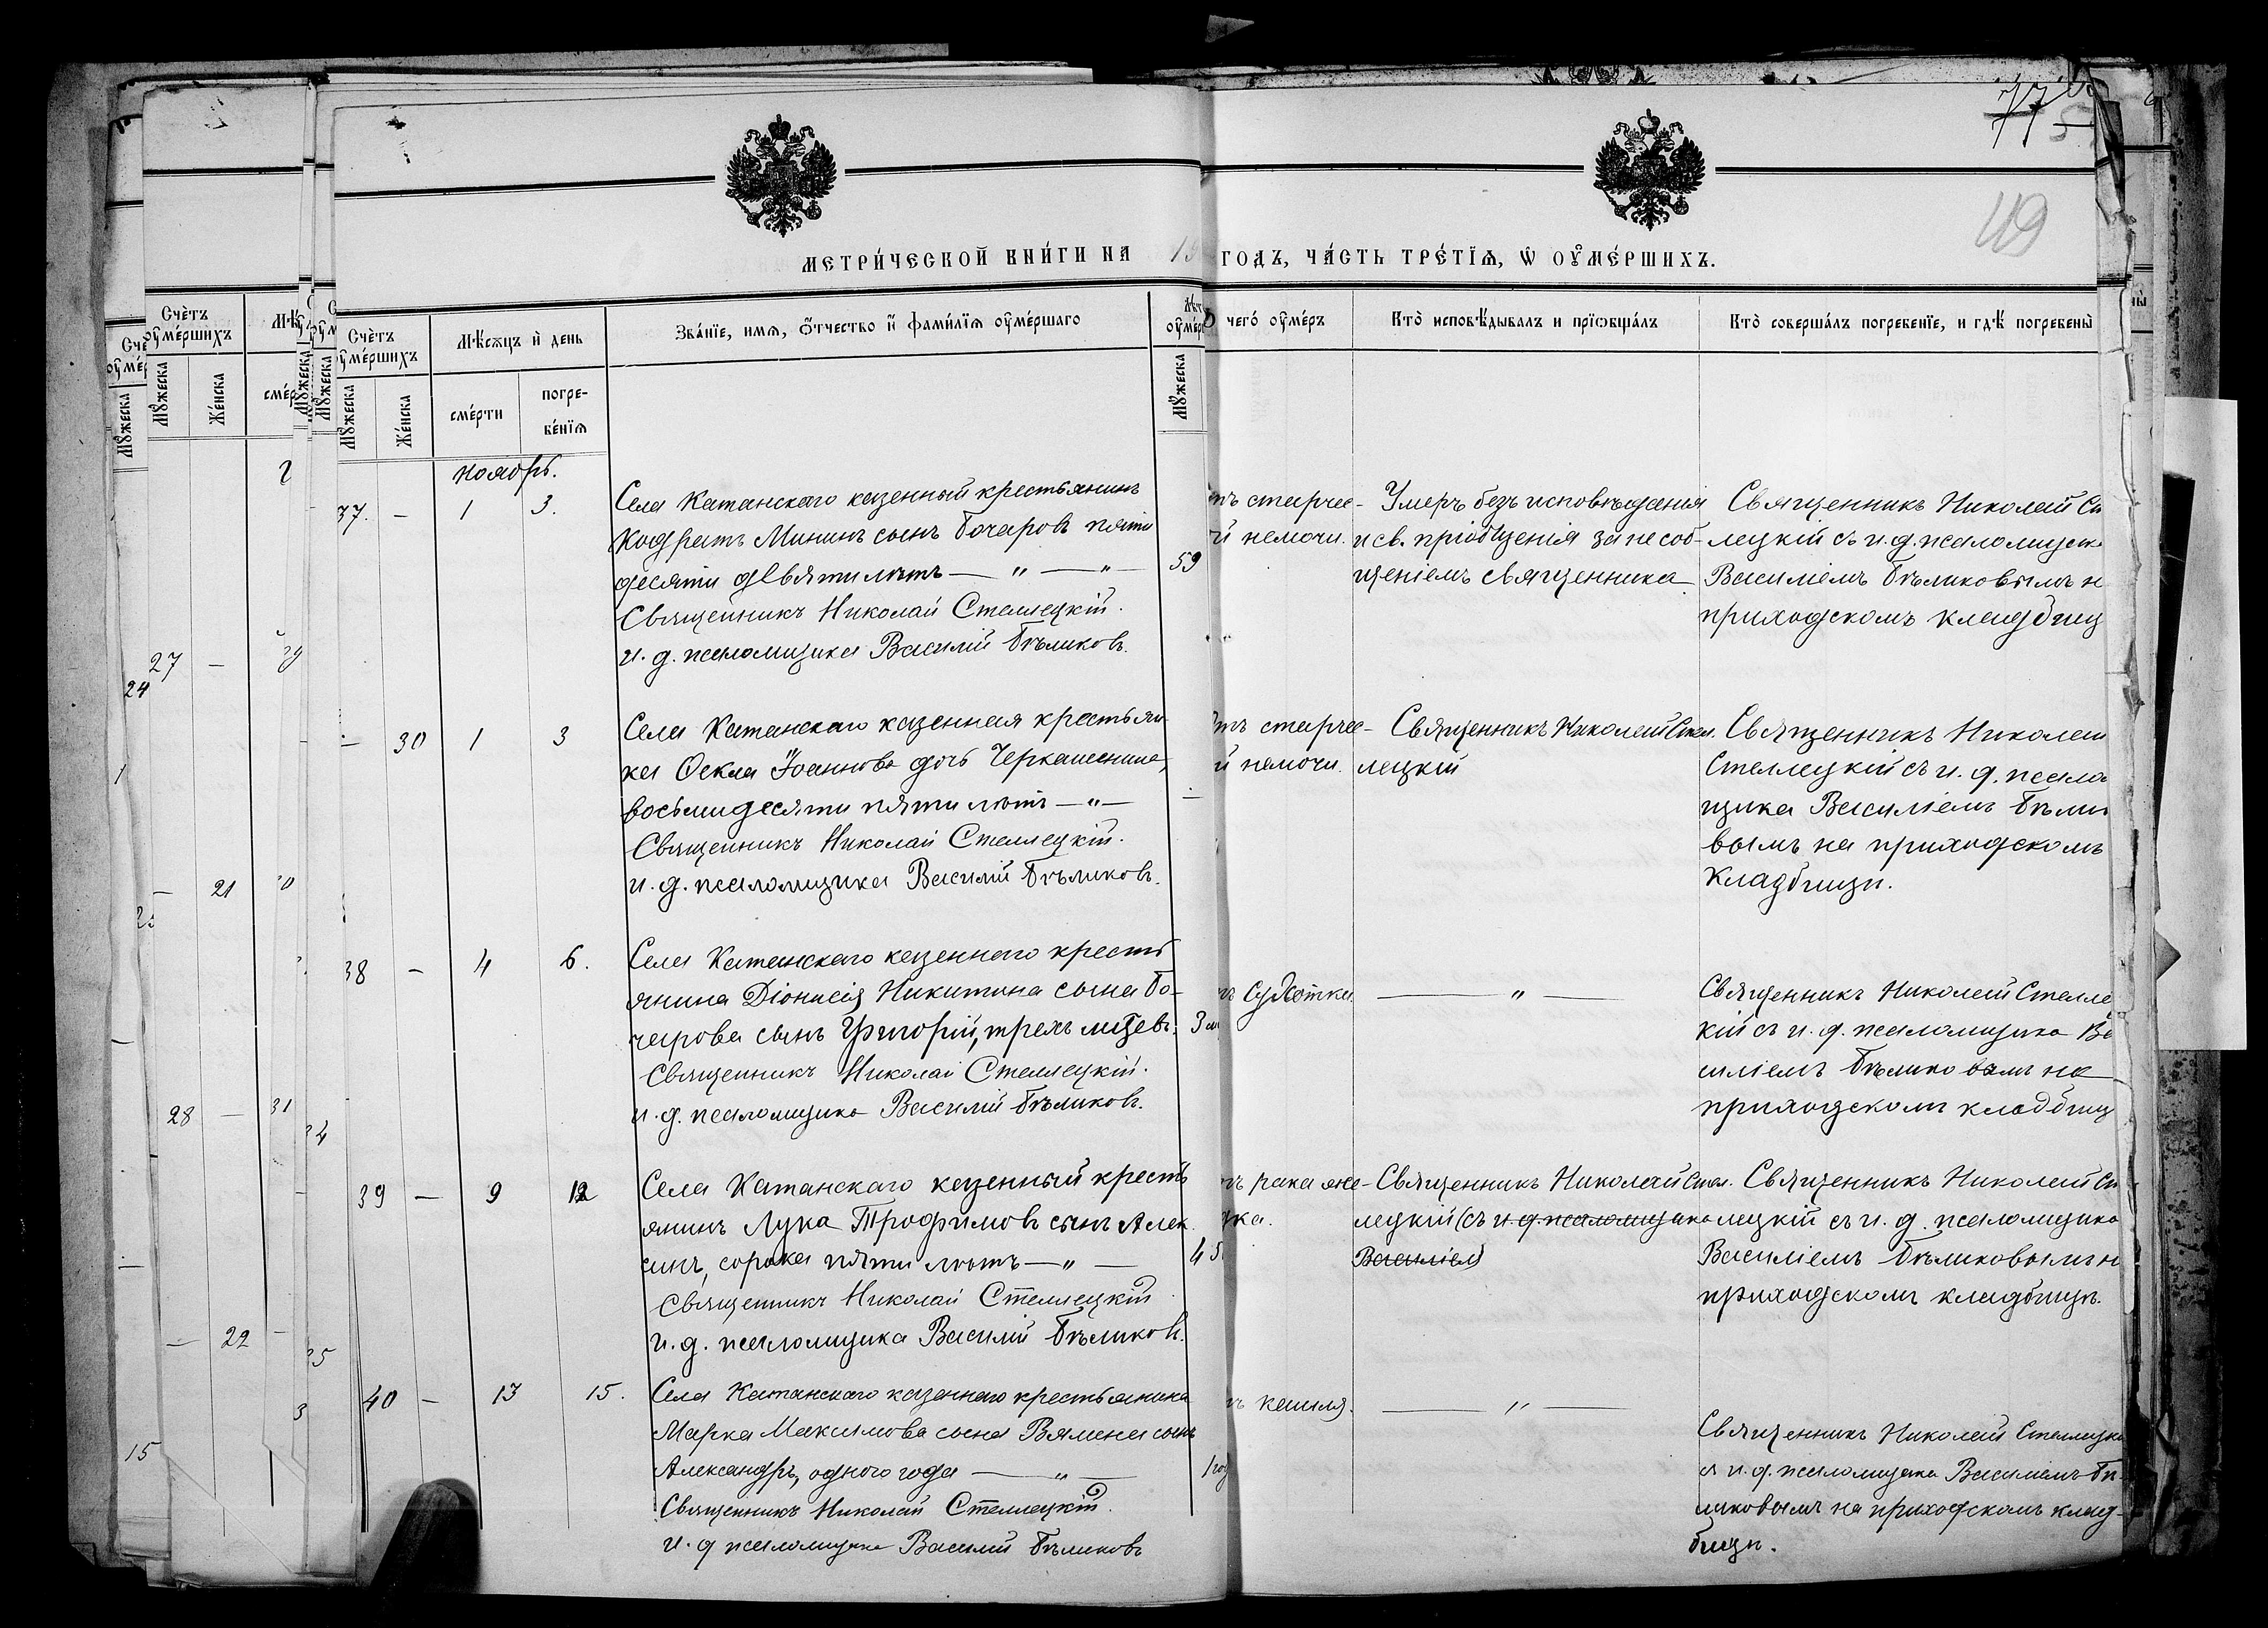 77
49
МЕТРИ́ЧЕСКОЙ КНИ́ГИ НА 19
ГОДЪ, ЧА́СТЬ ТРЕ́ТЇѦ, Ѡ ОУМЕ́РШИХЪ.
Счётъ оумéршихъ
Мѣсѧцъ и день
Зва́нїе, имѧ, ѻтчество и фами́лїѧ оумéршаго
чегѡ оумéръ
Кто̀ исповѣ́дывалъ и прїѡбща́лъ
Кто̀ соверша́лъ погребенїе, и гдѣ̀ погребены̀
Мꙋжеска
Же́нска
сме́рти
погре-
бе́нїѧ
Мꙋжеска
ноябрь.
37. — 1 3.
Села Катанскаго казенный крестьянинъ
Кодратъ Мининъ сынъ Бочаровъ пяти
десяти девяти лѣтъ — " — " —
59
Священникъ Николай Стеллецкій.
и. д. псаломщика Василій Бѣликовъ.
тъ старчес-
й немочи.
Умеръ безъ исповѣданія
и св. пріобщенія за не сооб-
щеніемъ священника
Священникъ Николай Ст
лецкій съ и. д. псаломщик
Василіемъ Бѣликовымъ н
приходскомъ кладбищ
— 30 1 3
Села Катанскаго казенная крестьян-
ка Ѳекла Іоаннова дочь Черкашенина,
восьмидесяти пяти лѣтъ — " —
Священникъ Николай Стеллецкій.
и. д. псаломщика Василій Бѣликовъ.
тъ старчес-
й немочи.
Священникъ Николай Стел.
лецкій
Священникъ Николай
Стеллецкій съ и. д. псалом
щика Василіемъ Бѣлик
вымъ на приходскомъ
кладбищѣ.
38 — 4 6.
Села Катанскаго казеннаго кресть
янина Діонисія Никитина сына Бо-
чарова сынъ Григорій, трехъ мѣсяцевъ.
3 м
Священникъ Николай Стеллецкій.
и. д. псаломщика Василій Бѣликовъ.
ъ сухотки
— " —
Священникъ Николай Стелле
кій съ и. д. псаломщика Ва
силіемъ Бѣликовымъ на
приходскомъ кладбищ
39 — 9 12
Села Катанскаго казенный кресть
янинъ Лука Трофимовъ сынъ Алек
синъ, сорока пяти лѣтъ — " —
45
Священникъ Николай Стеллецкій
и. д. псаломщика Василій Бѣликовъ.
ъ рака же-
дка.
Священникъ Николай Стел.
лецкій (съ и. д. псаломщика
Василіем)
Священникъ Николай Ст
лецкій съ и. д. псаломщика
Василіемъ Бѣликовымъ н
приходскомъ кладбищѣ.
40 — 13 15.
Села Катанскаго казеннаго крестьянина
Марка Максимова сына Вялина сынъ
Александръ, одного года — " —
1 год
Священникъ Николай Стеллецкій.
и. д псаломщика Василій Бѣликовъ
ъ кашля.
— " —
Священникъ Николай Стеллецкі
съ и. д. псаломщика Василіемъ Бѣ-
ликовымъ на приходскомъ клад-
бищѣ.
27 —
24
— 21
28 — 31
— 22
15